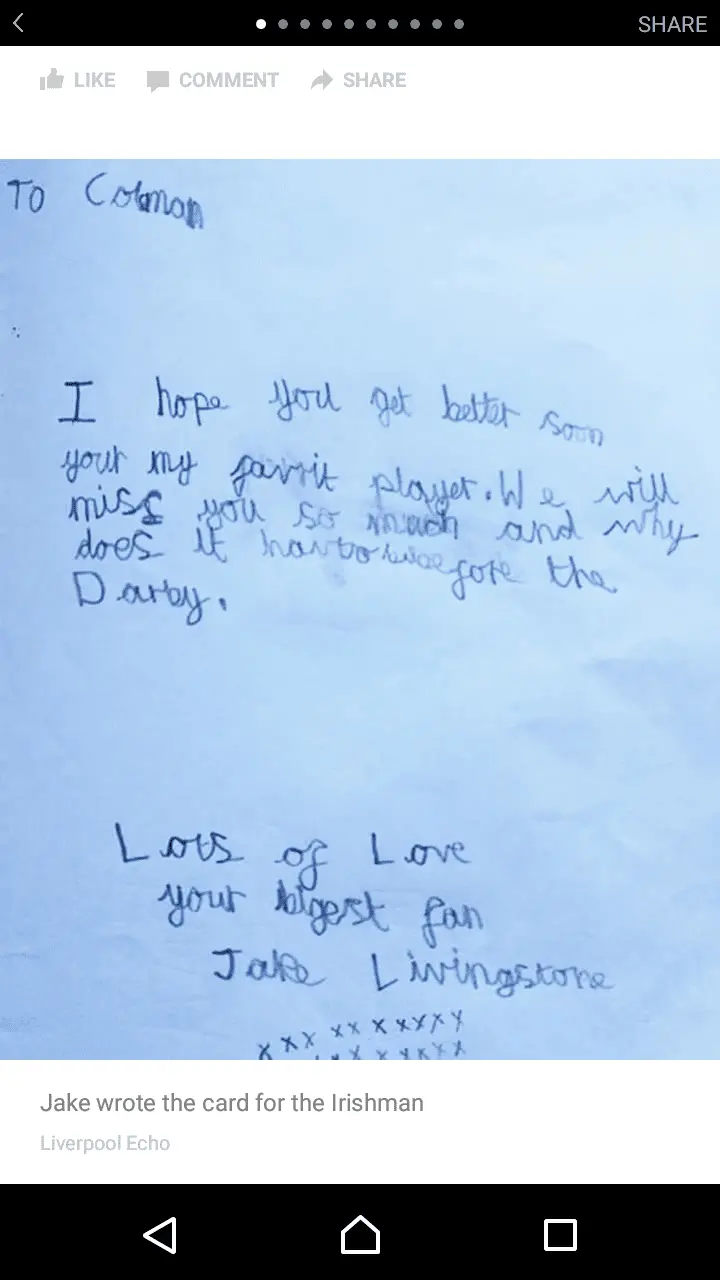 SHARE
LIKE COMMENT SHARE
TO Colman
I hope you get better soon
your my favrit player. We will
miss you so much and why
does it
fore the
Darby.
Lots of Love
your bigest fan
Jake Livingstone
x x x x x x x x x x
x x x x x x
Jake wrote the card for the Irishman
Liverpool Echo